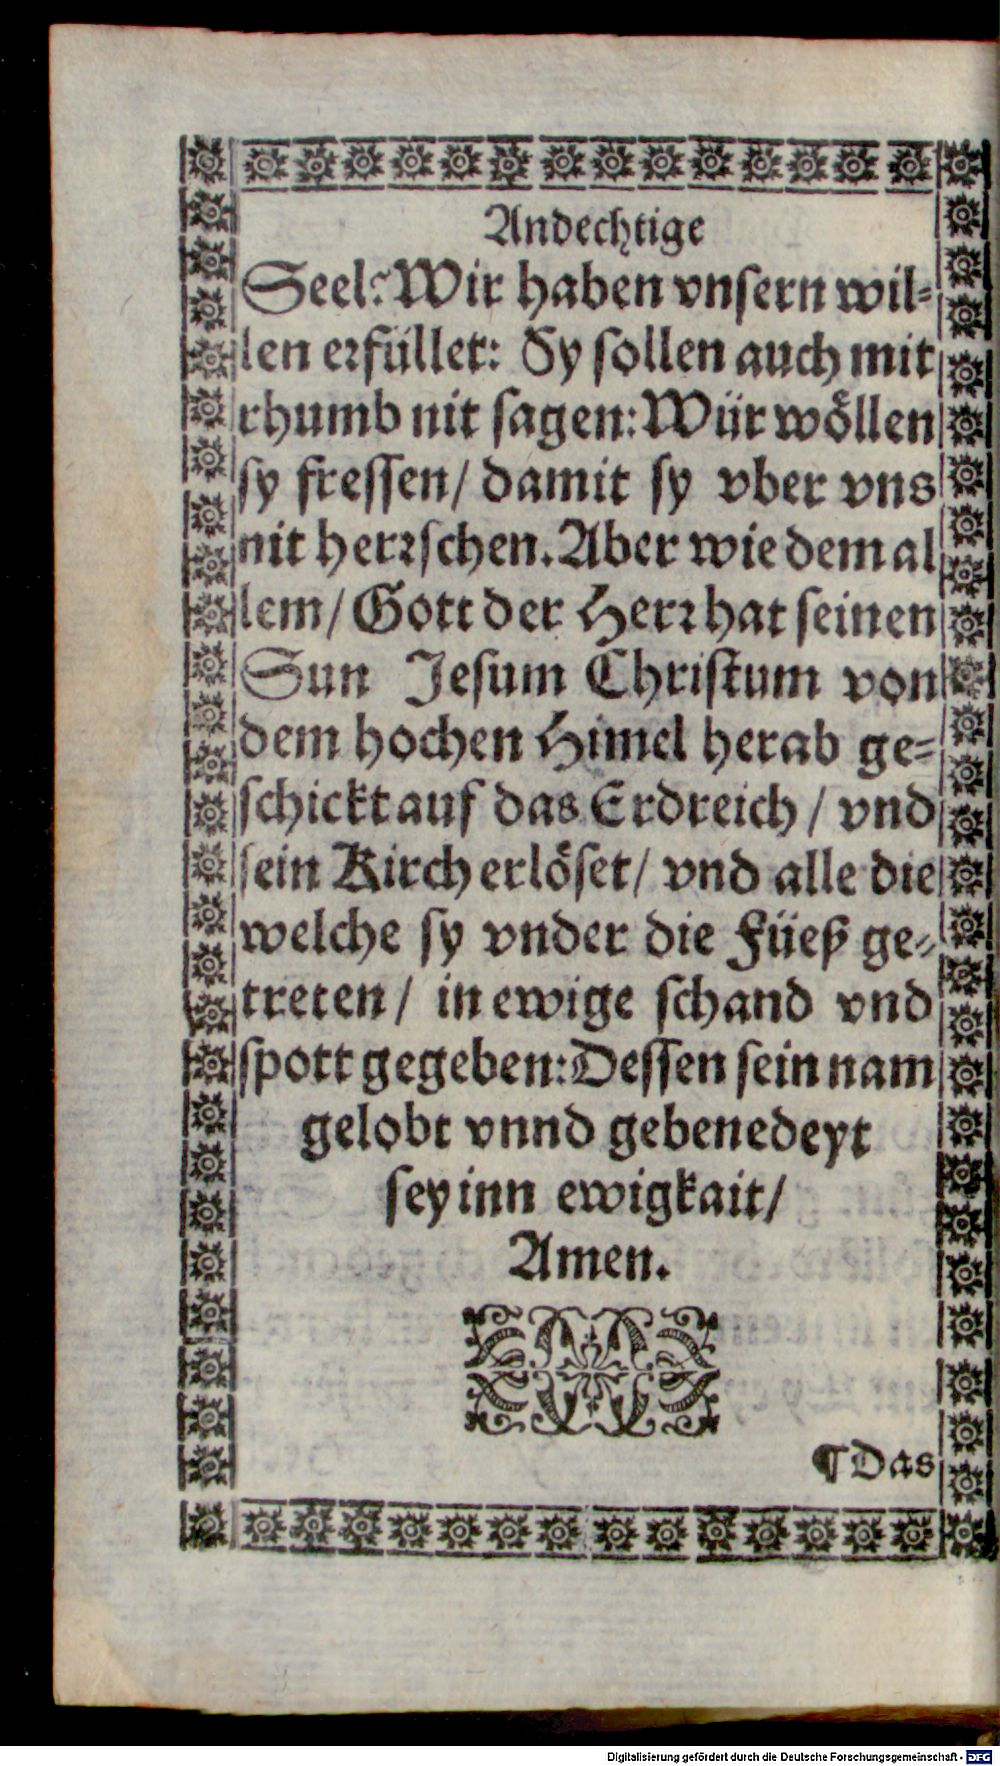 Andechtige
Seel? Wir haben vnsern wil-
len erfüllet: Sy sollen auch mit
rhumb nit sagen: Wür wöllen
sy fressen/ damit sy vber vns
nit herrschen. Aber wie dem al
lem/ Gott der Herr hat seinen
Sun Jesum Christum von
dem hochen Himel herab ge-
schickt auf das Erdreich/ vnd
sein Kirch erlöset/ vnd alle die
welche sy vnder die Füeß ge-
treten/ in ewige schand vnd
spott gegeben: Dessen sein nam
gelobt vnnd gebenedeyt
sey inn ewigkait/
Amen.
¶ Das
Digitalisierung gefördert durch die Deutsche Forschungsgemeinschaft - DFG